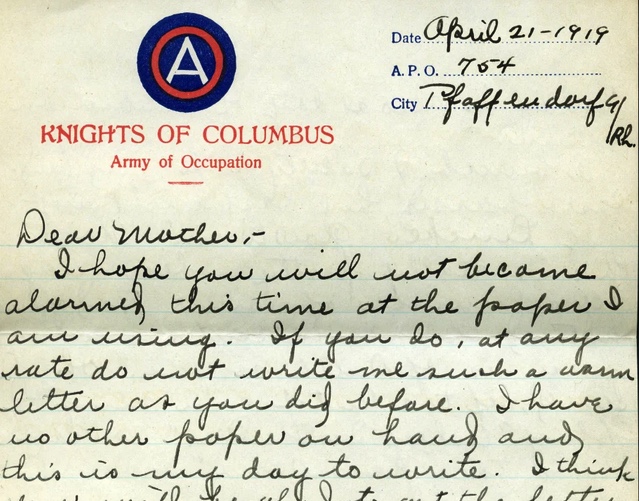 A
Date April 21-1919
A. P. O. 754
City Pfaffendorf a/
Rh.
KNIGHTS OF COLUMBUS
Army of Occupation
Dear Mother,-
I hope you will not become
alarmed this time at the paper I
am using. If you do, at any
rate do not write me such a warm
letter as you did before. I have
no other paper on hand and
this is my day to write. I think